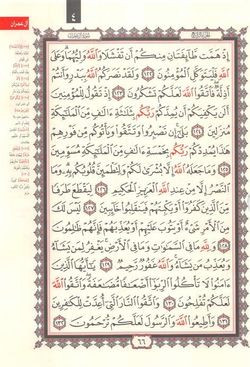 آل عمران
٤
إِذْ هَمَّت طَّآئِفَتَانِ مِنكُمْ أَن تَفْشَلَا وَٱللَّهُ وَلِيُّهُمَا وَعَلَى
ٱللَّهِ فَلْيَتَوَكَّلِ ٱلْمُؤْمِنُونَ ١٢٢ وَلَقَدْ نَصَرَكُمُ ٱللَّهُ بِبَدْرٍ وَأَنتُمْ
أَذِلَّةٌ فَٱتَّقُوا۟ ٱللَّهَ لَعَلَّكُمْ تَشْكُرُونَ ١٢٣ إِذْ تَقُولُ لِلْمُؤْمِنِينَ
أَلَن يَكْفِيَكُمْ أَن يُمِدَّكُمْ رَبُّكُم بِثَلَٰثَةِ ءَالَٰفٍ مِّنَ ٱلْمَلَٰٓئِكَةِ
مُنزَلِينَ ١٢٤ بَلَىٰٓ إِن تَصْبِرُوا۟ وَتَتَّقُوا۟ وَيَأْتُوكُم مِّن فَوْرِهِمْ
هَٰذَا يُمْدِدْكُمْ رَبُّكُم بِخَمْسَةِ ءَالَٰفٍ مِّنَ ٱلْمَلَٰٓئِكَةِ مُسَوِّمِينَ
١٢٥ وَمَا جَعَلَهُ ٱللَّهُ إِلَّا بُشْرَىٰ لَكُمْ وَلِتَطْمَئِنَّ قُلُوبُكُم بِهِۦ وَمَا
ٱلنَّصْرُ إِلَّا مِنْ عِندِ ٱللَّهِ ٱلْعَزِيزِ ٱلْحَكِيمِ ١٢٦ لِيَقْطَعَ طَرَفًا
مِّنَ ٱلَّذِينَ كَفَرُوٓا۟ أَوْ يَكْبِتَهُمْ فَيَنقَلِبُوا۟ خَآئِبِينَ ١٢٧ لَيْسَ لَكَ
مِنَ ٱلْأَمْرِ شَىْءٌ أَوْ يَتُوبَ عَلَيْهِمْ أَوْ يُعَذِّبَهُمْ فَإِنَّهُمْ ظَٰلِمُونَ
١٢٨ وَلِلَّهِ مَا فِى ٱلسَّمَٰوَٰتِ وَمَا فِى ٱلْأَرْضِ يَغْفِرُ لِمَن يَشَآءُ
وَيُعَذِّبُ مَن يَشَآءُ وَٱللَّهُ غَفُورٌ رَّحِيمٌ ١٢٩ يَٰٓأَيُّهَا ٱلَّذِينَ
ءَامَنُوا۟ لَا تَأْكُلُوا۟ ٱلرِّبَوٰٓا۟ أَضْعَٰفًا مُّضَٰعَفَةً وَٱتَّقُوا۟ ٱللَّهَ
لَعَلَّكُمْ تُفْلِحُونَ ١٣٠ وَٱتَّقُوا۟ ٱلنَّارَ ٱلَّتِىٓ أُعِدَّتْ لِلْكَٰفِرِينَ
١٣١ وَأَطِيعُوا۟ ٱللَّهَ وَٱلرَّسُولَ لَعَلَّكُمْ تُرْحَمُونَ ١٣٢
٦٦